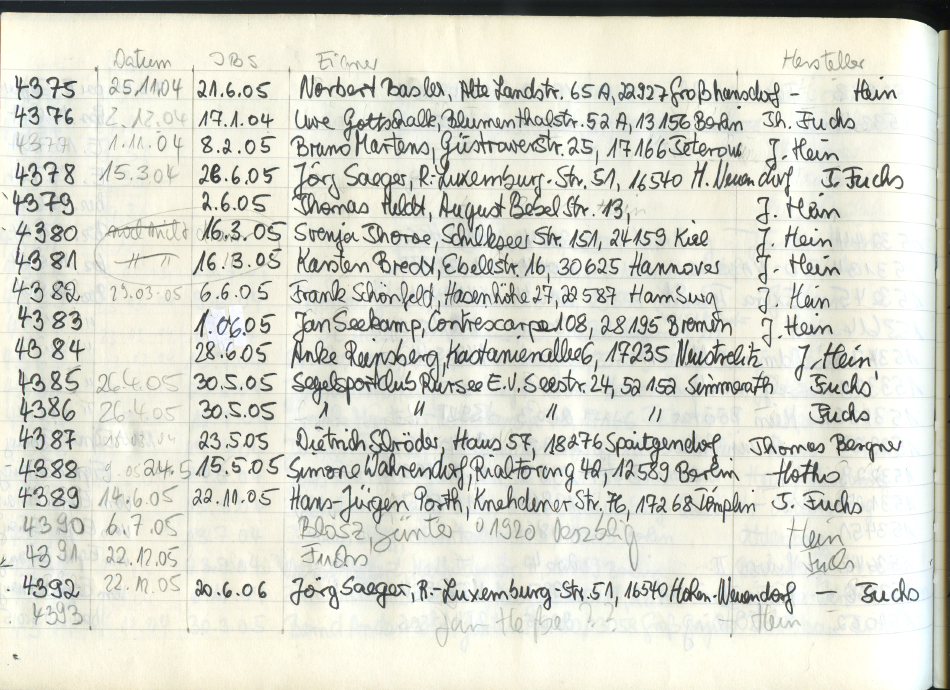 Datum JBS Eigner Hersteller
4375 25.11.04 21.6.05 Norbert Basler, Alte Landstr. 65 A, 22927 Großhansdorf - Hein
4376 2.12.04 17.1.04 Uwe Gottschalk, Blumenthalstr. 52 A, 13156 Berlin Th. Fuchs
4377 1.11.04 8.2.05 Bruno Martens, Güstrowerstr. 25, 17166 Teterow J. Hein
4378 15.3.04 28.6.05 Jörg Saeger, R.-Luxemburg-Str. 51, 16540 H. Neuendorf J. Fuchs
4379 2.6.05 Thomas Huldt, August Bebel Str. 13, J. Hein
4380 16.3.05 Svenja Thoroe, Schilkseer Str. 151, 24159 Kiel J. Hein
4381 " " 16.3.05 Karsten Bredt, Ebellstr. 16, 30625 Hannover J. Hein
4382 29.03.05 6.6.05 Frank Schönfeld, Hasenhöhe 27, 22587 Hamburg J. Hein
4383 1.06.05 Jan Seekamp, Contrescarpe 108, 28195 Bremen J. Hein
4384 28.6.05 Anke Rensberg, Kastanienallee 6, 17235 Neustrelitz J. Hein
4385 26.4.05 30.5.05 Segelsportclub Rursee E.V. Seestr. 24, 52152 Simmerath Fuchs
4386 26.4.05 30.5.05 " " " " Fuchs
4387 23.5.05 Dietrich Schröder, Haus 57, 18276 Spoitgendorf Thomas Bergner
4388 24.5 15.5.05 Simone Wahrendorf, Rialtoring 42, 12589 Berlin Hotho
4389 14.6.05 22.11.05 Hans-Jürgen Porth, Knehdener Str. 76, 17268 Templin J. Fuchs
4390 6.7.05 Blosz, Günter Hein
4391 22.12.05 Fuchs Fuchs
4392 22.12.05 20.6.06 Jörg Saeger, R.-Luxemburg-Str. 51, 16540 Hohen-Neuendorf - Fuchs
4393 Jan - Hein